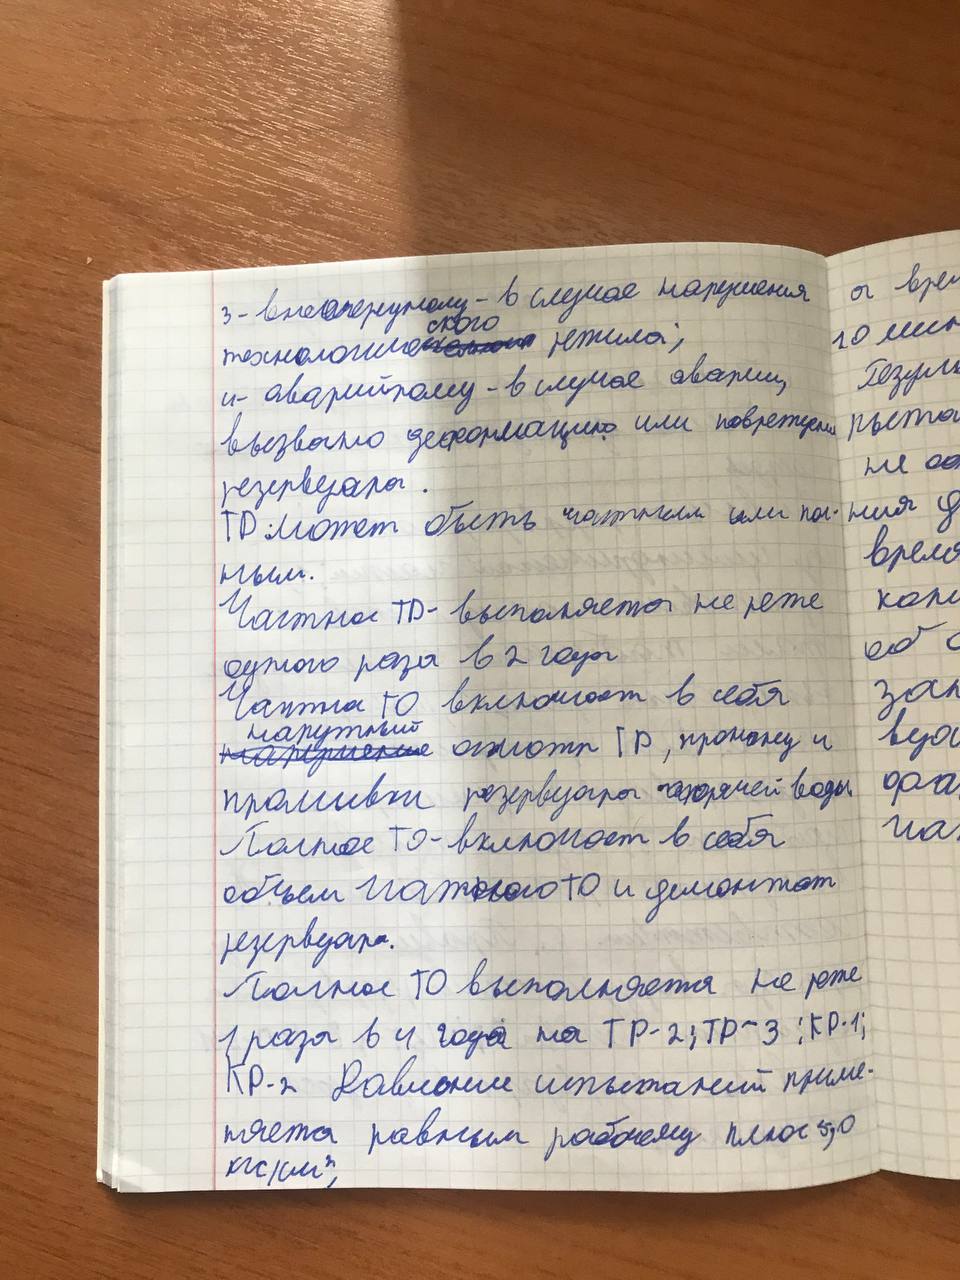 з- внеочередному - в случае нарушения
технологического режима;
и- аварийному - в случае аварии,
вызвано деформацию или повреждении
резервуара.
ТО может быть частным или пол-
ным.
Частное ТО - выполняется не реже
одного раза в 2 года
Частное ТО включает в себя
наружный осмотр ТР, пропарку и
промывки резервуара горячей воды
Полное ТО - включает в себя
объем частного ТО и демонтаж
резервуара.
Полное ТО выполняется не реже
1 раза в 4 года на ТР-2; ТР-3; КР-1;
КР-2 Давление испытаний приме-
няета равным рабочему плюс 5,0
кгс/см²;
а врем
10 мин
Резуль
рьета
не об
ния д
время
об
зап
орга